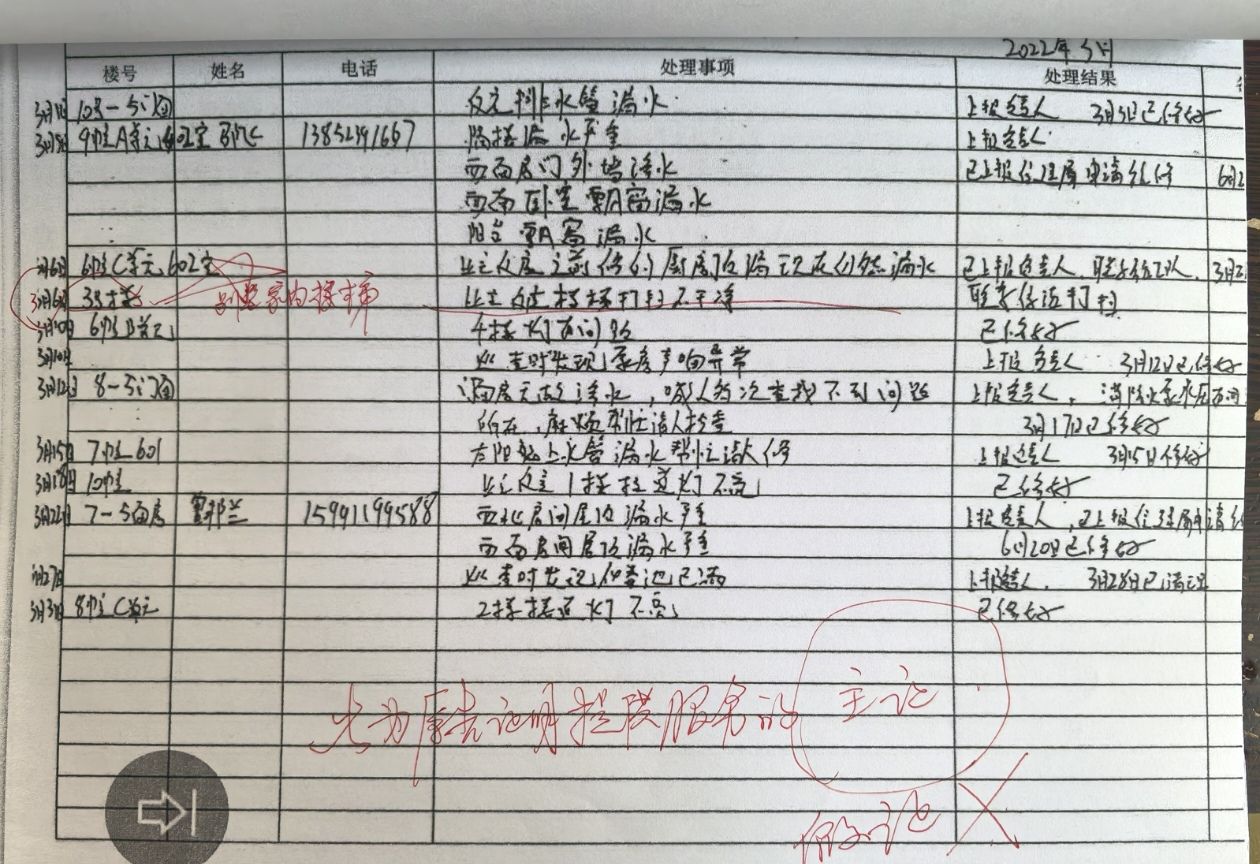 2022年3月
楼号 姓名 电话 处理事项 处理结果
3月1日 10号-5门面 反应排水管漏水 上报负责人 3月3日已修好
9幢A单元402室 13852791667 隔楼漏水严重 上报负责人
西面房门外墙渗水 已上报住建局申请维修
西面卧室飘窗漏水
阳台飘窗漏水
3月6日 6幢C单元602室 业主反应之前修的厨房顶漏现在仍然漏水 已上报负责人
3月6日 38楼 别墅家内楼梯 业主反应楼梯打扫不干净 联系保洁打扫
3月10日 6幢B单元 4楼灯有问题 已修好
3月10日 巡查时发现泵房声响异常 上报负责人 3月12日已修好
3月12日 8-5门面 漏房无故渗水,喊人多次查找不到问题 上报负责人,消防水泵水压有问
所在,麻烦帮忙请人检查 3月17日已修好
3月15日 7幢601 左阳台上水管漏水帮忙请人修 上报负责人 3月15日修好
3月18日 10幢 业主反应1楼楼道灯不亮 已修好
3月22日 7-5面房 15991199588 西北房间屋顶漏水严重 上报负责人,已上报住建局申请
西面房间屋顶漏水严重 6月20日已修好
巡查时发现化粪池已满 上报负责人. 3月28日已清
3月31日 8幢C单元 2楼楼道灯不亮 已修好
此为原告证明提供服务的 主证
假证